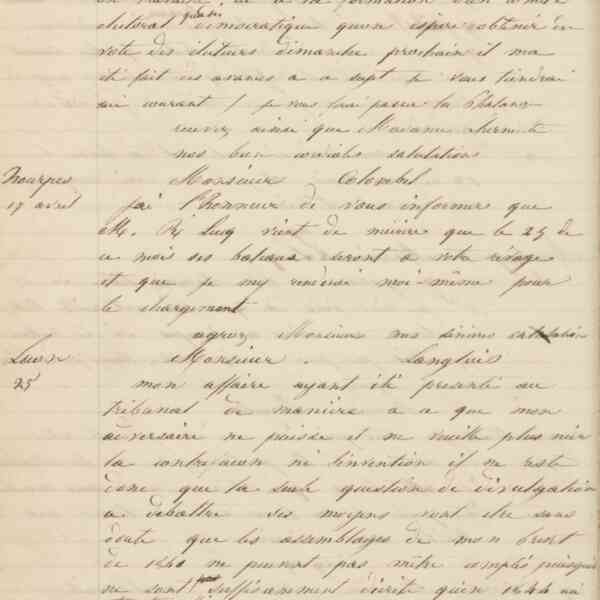 électoral démocratique qu'on espère obtenir en
vote des électeurs dimanche prochain il m'a
été fait des avances à ce sujet je vous tiendrai
au courant / je vous ferai passer la Phalange
recevez ainsi que Madame
nos bien cordiales salutations
17 avril
Monsieur Colombel
j'ai l'honneur de vous informer que
M. Luiq vient de m'écrire que le 25 de
ce mois ses bateaux seront à votre rivage
et que je m'y rendrai moi-même pour
le chargement
agréez Monsieur mes sincères salutation
Monsieur . Langlois
25
mon affaire ayant été présenté au
tribunal de manière à ce que mon
adversaire ne puisse et ne veuille plus nier
la contrefaçon ni l'invention il ne reste
donc que la seule question de divulgation
à débattre ses moyens sont dès sans
doute que les assemblages de mon brevet
de 1840 ne peuvent pas m'être comptés puisque
ne sont pas suffisamment décrits qu'en 1844